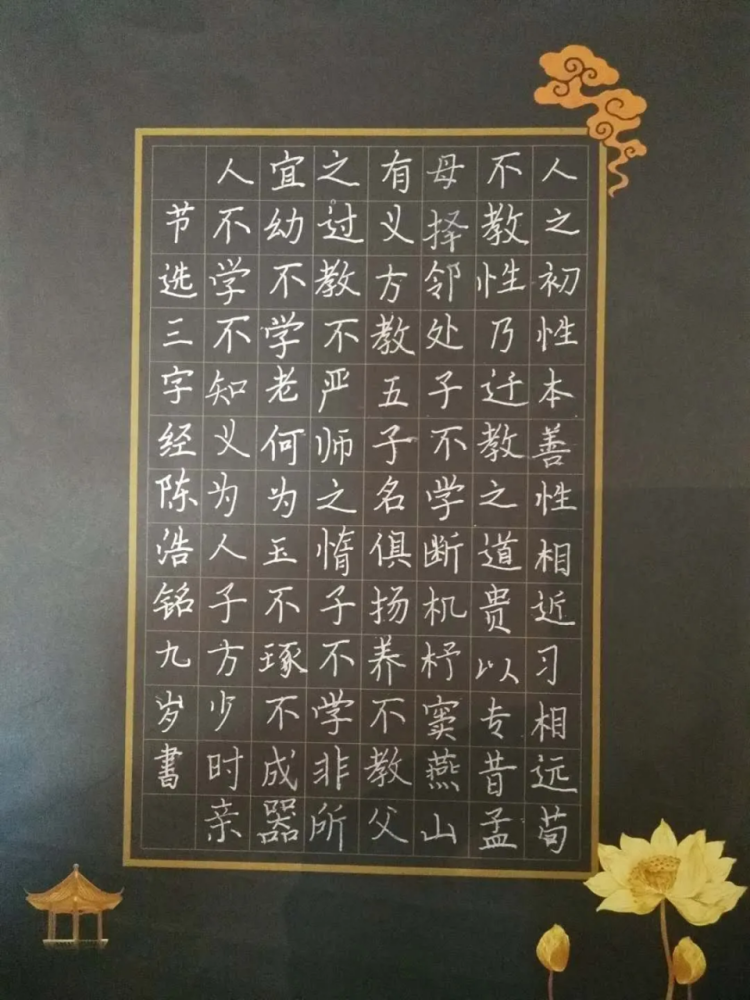 人之初性本善性相近习相远苟
不教性乃迁教之道贵以专昔孟
母择邻处子不学断机杼窦燕山
有义方教五子名俱扬养不教父
之过教不严师之惰子不学非所
宜幼不学老何为玉不琢不成器
人不学不知义为人子方少时亲
节选三字经陈浩铭九岁书